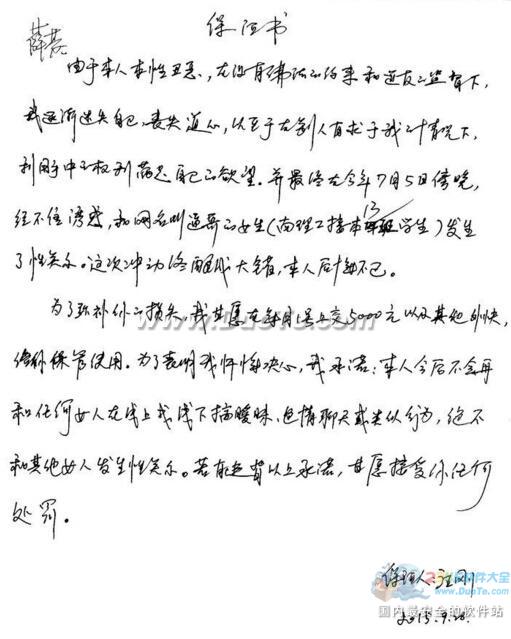 保证书
薛荔
由于本人本性丑恶，在没有佛法的约束和道友的监督下，
我逐渐迷失自己，丧失道心，以至于在别人有求于我的情况下，
利用手中的权利满足自己的欲望。并最终在今年7月5日傍晚，
经不住诱惑，和网名叫逍哥的女生（南理工接本13学生）发生
了性关系。这次冲动终酿成大错，本人后悔不已。
为了弥补你的损失，我甘愿在每月1号上交5000元以及其他外快，
给你保管使用。为了表明我忏悔决心，我承诺：本人今后不会再
和任何女人在线上或线下搞暧昧、色情聊天或类似行为，绝不
和其他女人发生性关系。若有违背以上承诺，甘愿接受你任何
处罚。
保证人：汪刚
2013.9.20.
www.DuoTe.com
软件大全
www.DuoTe.com
国内最安全的软件站